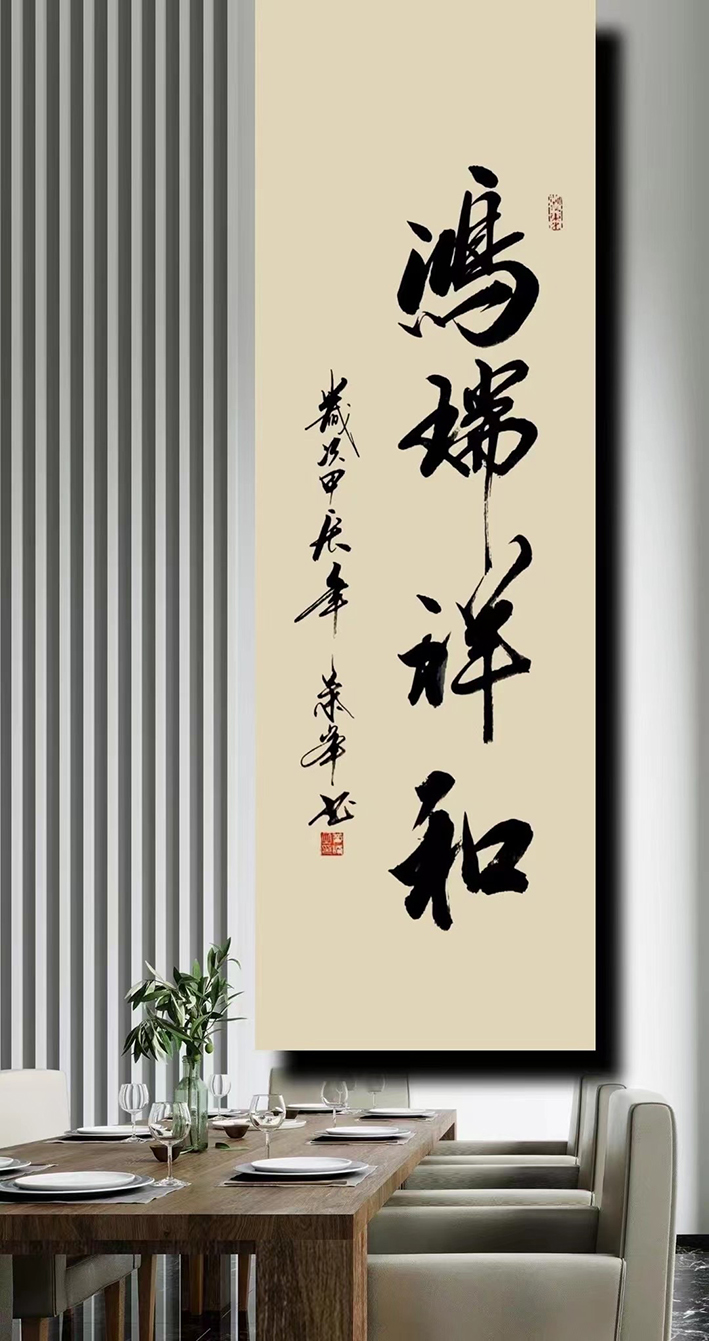 鴻瑞祥和
歲次甲辰年 书